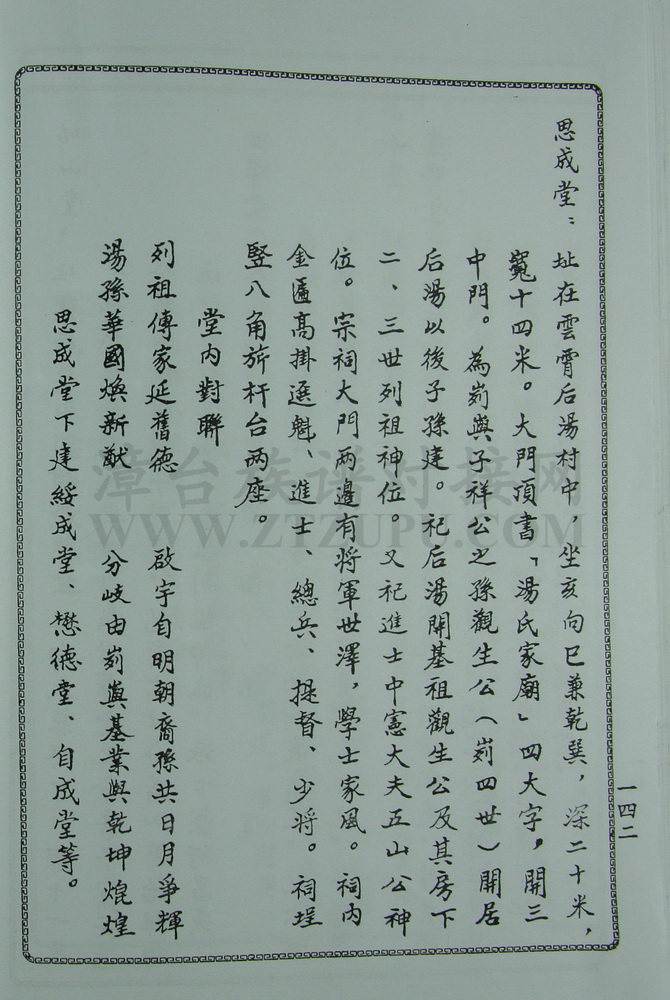 思成堂：址在雲霄后湯村中，坐亥向巳兼乾巽，深二十米，
寬十四米。大門頂書「湯氏家廟」四大字，開三
中門。為峛嶼子祥公之孫觀生公（峛四世）開居
后湯以後子孫建。祀后湯開基祖觀生公及其房下
二、三世列祖神位。又祀進士中憲大夫五山公神
位。宗祠大門两邊有將軍世澤，學士家風。祠内
金匾高掛選魁、進士、總兵、提督、少將。祠埕
竪八角旂杆台两座。
堂内對聯
列祖傳家延舊德　啟宇自明朝裔孫共日月爭輝
湯孫華國煥新猷　分岐由峛嶼基業與乾坤焜煌
思成堂下建綏成堂、懋德堂、自成堂等。
一四二
漳台族谱对接网
WWW.ZTZUPU.COM